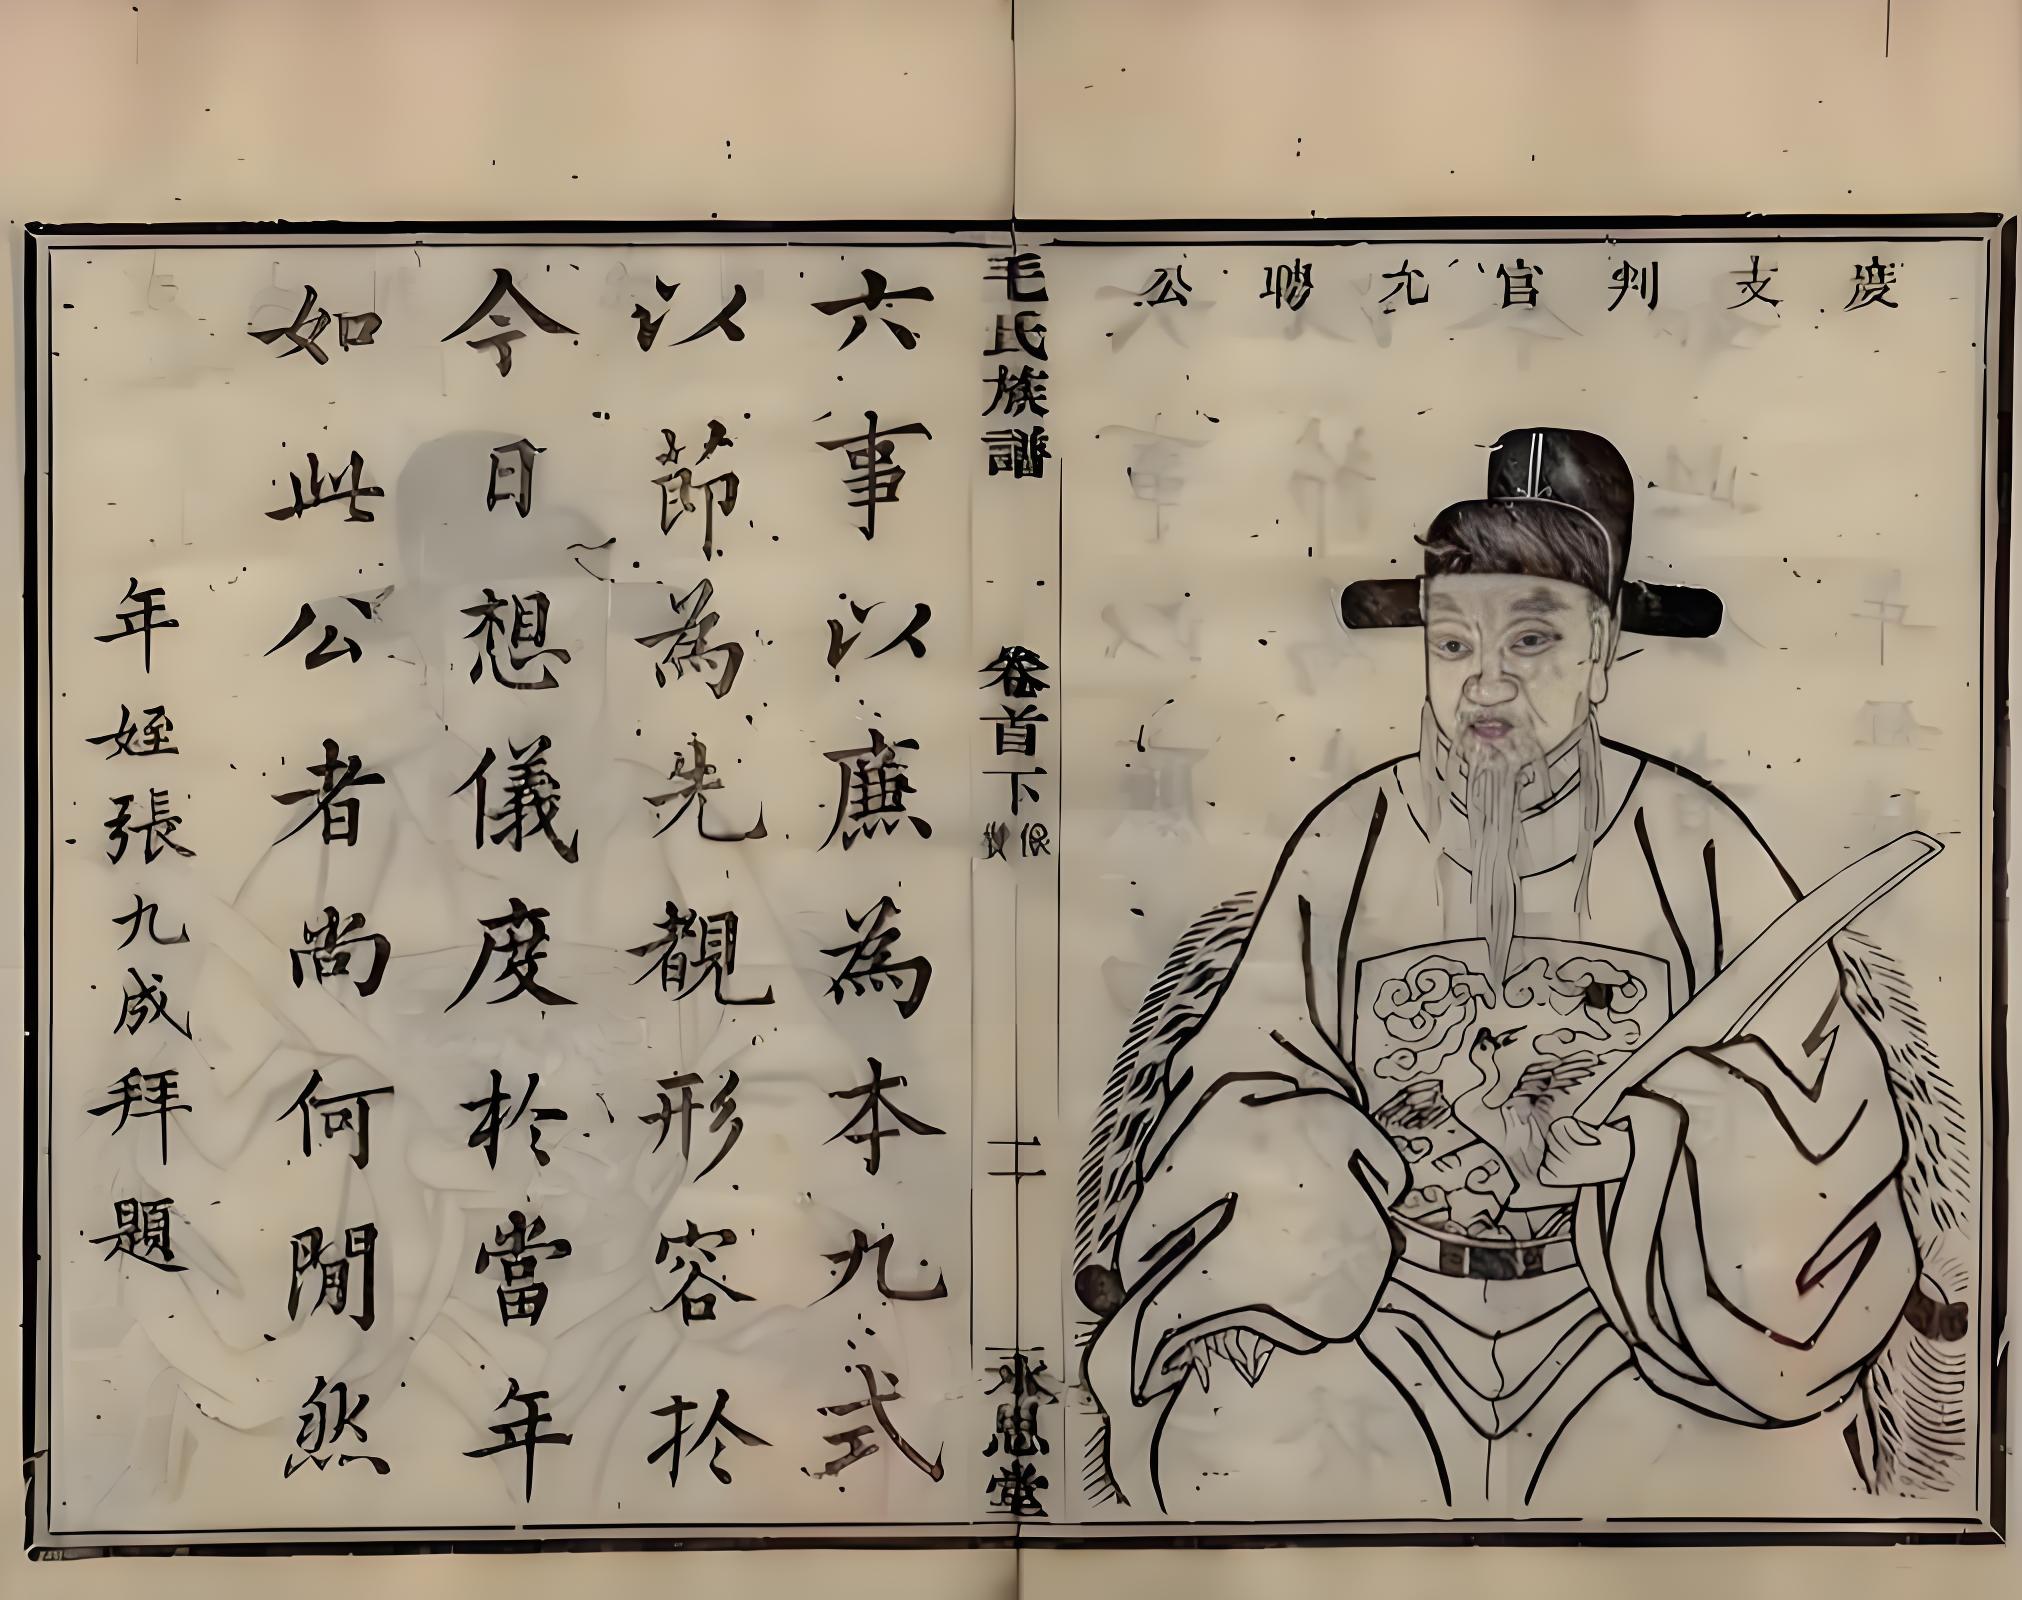 度支判官九聘公
毛氏族譜
卷首下
十一
永思堂
六事以廉為本九式
以節為先觀形容於
今日想儀度於當年
如此公者尚何間然
年姪張九成拜題